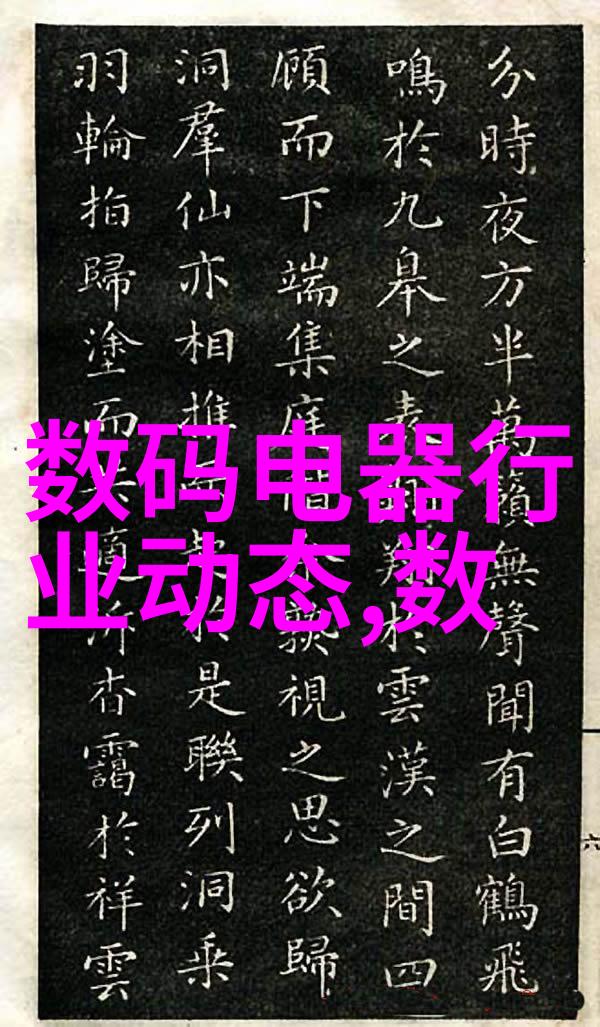 分時夜方半萬籟無聲聞有白鶴飛
鳴於九皋之表翔於雲漢之間四
顧而下端集庭視之思欲歸
洞羣仙亦相推於是聯列洞乘
羽輪拍歸塗而共適所杳靄於祥雲
数码电器行
业动态,数
六